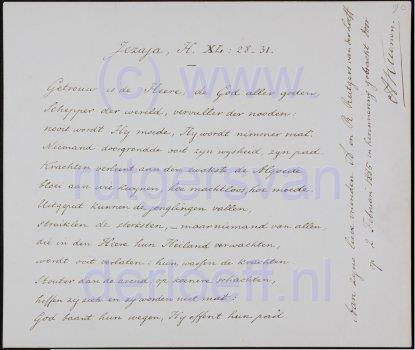 Jezaja, H. XL: 28-31.
Getrouw is de Heere, de God aller goden,
Schepper der wereld, vervuller der nooden:
nooit wordt Hy moede, Hy wordt nimmer mat.
Niemand doorgrondde ooit zyn wysheid, zyn pad.
Krachten verleent aan den zwakste de Alvoede
bloei aan wie kwynen, hoe machtloos, hoe moede.
Uitgeput kunnen de jongelingen vallen,
struiklen de sterksten, — maar niemand van allen,
die in den Heere hun Heiland verwachten,
werdt ooit verlaten: hun wassen de krachten
Stouter dan de arend, op
heffen zy zich en zy worden niet mat:
God baant hun wegen, Hy effent hun pad.
Aan zyne lieve vrienden A. en R. Rutgers van der Loeff
op 2 Februari 1885 in herinnering gebracht door
(c) www.
rutgersvan
derloeff.nl